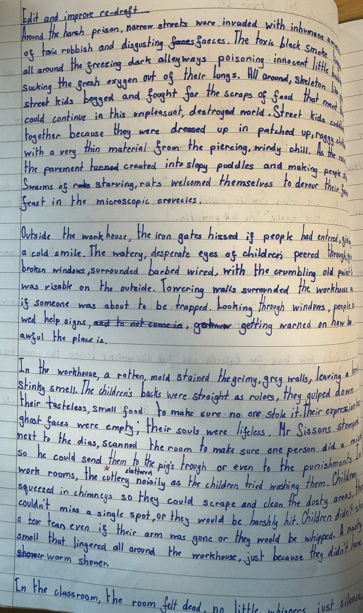 Edit and improve re-draft
Around the harsh prison, narrow streets were invaded with inhumane
of toxic robbish and disgusting faeces. The toxic black smoke
all around the freezing dark alleyways poisoning innocent little
sucking the fresh oxygen out of their lungs. All around, skeleton like
street kids begged and fought for the scraps of food that meant
could continue in this unpleasant, destroyed world. Street kids
together because they were dressed up in patched up, raggy
with a very thin material from the piercing, windy chill. As the
the pavement turned created into slopy puddles and making people
Swarms of rats starving, rats welcomed themselves to devour their
feast in the microscopic crevecies.
Outside the workhouse, the iron gates hissed if people had entered,
a cold smile. The watery, desperate eyes of children peered through
broken windows, surrounded barbed wired, with the crumbling old paint
was visable on the outside. Towering walls surrounded the workhouse
if someone was about to be trapped. Looking through windows, people
wed help signs, and to not come in, getting warned on how
awful the place is.
In the workhouse, a rotten, mold stained the grimy, grey walls, leaving a
stinky smell. The children's backs were straight as rulers, they gulped down
their tasteless, small food to make sure no one stole it. Their expression
ghost faces were empty, their souls were lifeless. Mr Sissons stomped
next to the dias, scanned the room to make sure one person did a
so he could send them to the pig's trough or even to the punishments. In
work rooms, the cutlery clattered noisily as the children tried washing them. Children
squeezed in chimneys so they could scrape and clean the dusty areas.
couldn't miss a single spot, or they would be harshly hit. Children didn't
a tear even if their arm was gone or they would be whipped. A nasty
smell that lingered all around the workhouse, just because they didn't have
shower warm shower.
In the classroom, the room felt dead, no little whispers, just silence